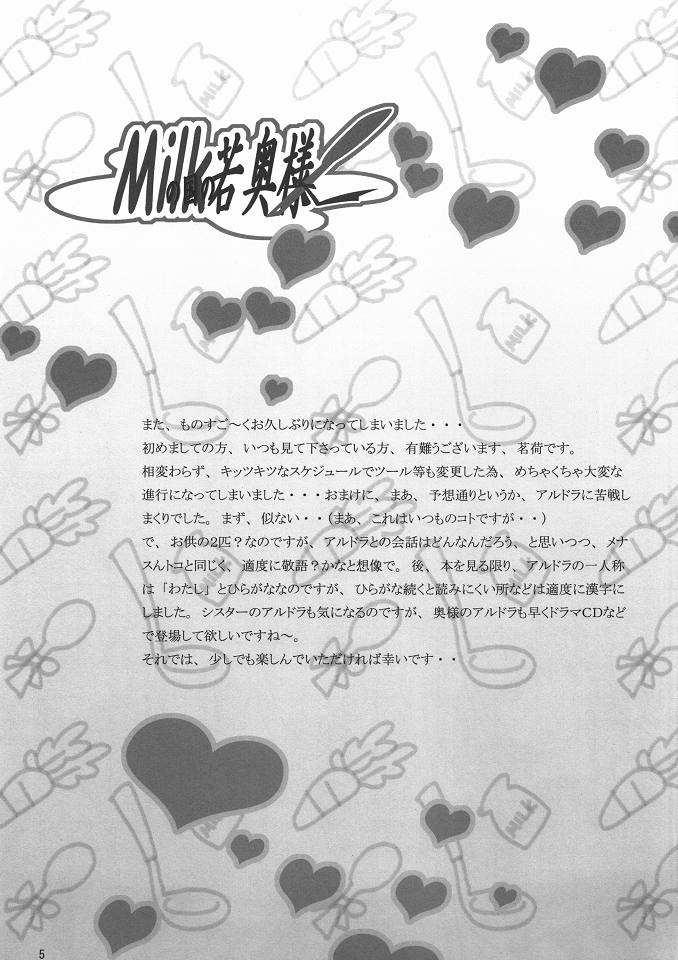 Milkの国の苦奥様
MILK
また、ものすご～くお久しぶりになってしまいました・・・
初めましての方、いつも見て下さっている方、有難うございます、茗荷です。
相変わらず、キッツキツなスケジュールでツール等も変更した為、めちゃくちゃ大変な
進行になってしまいました・・・おまけに、まあ、予想通りというか、アルドラに苦戦し
まくりでした。まず、似ない・・（まあ、これはいつものコトですが・・）
で、お供の2匹？なのですが、アルドラとの会話はどんなんだろう、と思いつつ、メナ
スんトコと同じく、適度に敬語？かなと想像で。後、本を見る限り、アルドラの一人称
は「わたし」とひらがななのですが、ひらがな続くと読みにくい所などは適度に漢字に
しました。シスターのアルドラも気になるのですが、奥様のアルドラも早くドラマCDなど
で登場して欲しいですね～。
それでは、少しでも楽しんでいただければ幸いです・・
MILK
MILK
MILK
5